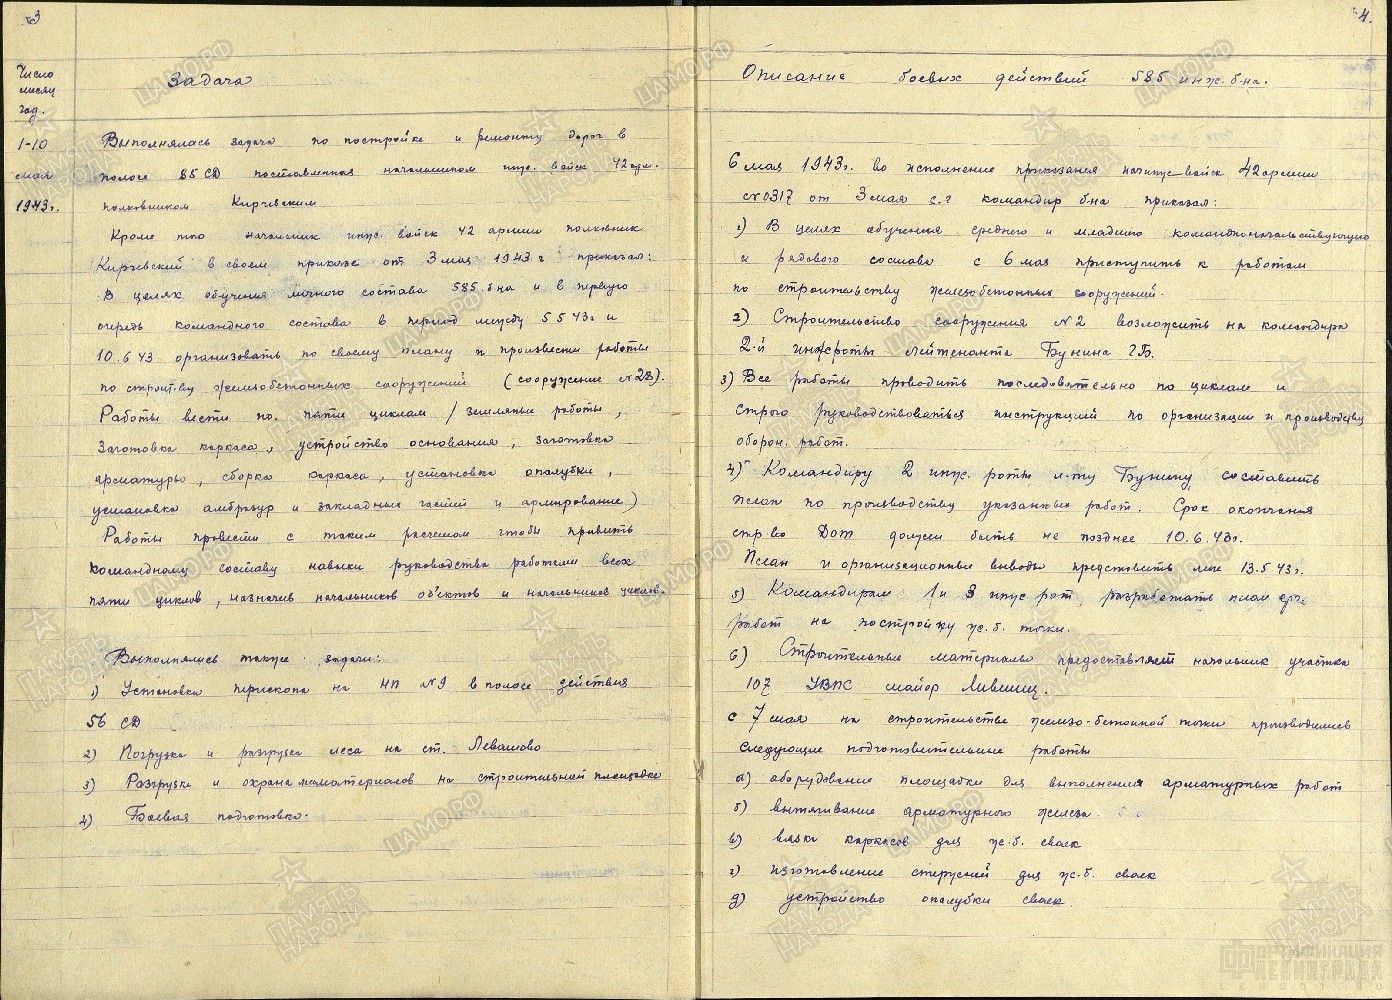 3
Число
месяц
год.
Задача
1-10
мая
1943г.
Выполнялась задача по постройке и ремонту дорог в
полосе 85 СД поставленная начальником инж. войск 42 арм.
полковником Кирчевским
Кроме того начальник инж. войск 42 армии полковник
Кирчевский в своем приказе от 3 мая 1943 г приказал:
В целях обучения личного состава 585 б-на и в первую
очередь командного состава в период между 5 5 43г и
10.6 43 организовать по своему плану и произвести работы
по строит-ву железобетонных сооружений (сооружение №28).
Работы вести по пяти циклам / земляные работы,
Заготовка каркаса, устройство основания, заготовка
арматуры, сборка каркаса, установка опалубки,
установка амбразур и закладных частей и армирование)
Работы провести с таким расчетом чтобы привить
командному составу навыки руководства работами всех
пяти циклов, назначив начальников об'ектов и начальников циклов.
Выполнялись также задачи:
1) Установка перископа на НП №9 в полосе действия
56 СД
2) Погрузка и разгрузка леса на ст. Левашово
3) Разгрузка и охрана лесоматериалов на строительной площадке
4) Боевая подготовка.
4.
Описание боевых действий 585 инж. б-на.
6 мая 1943г. во исполнение приказания начинж-войск 42 армии
№0317 от 3 мая с.г командир б-на приказал:
1) В целях обучения среднего и младшего командноначальствующего
и рядового состава с 6 мая приступить к работам
по строительству железобетонных сооружений.
2) Строительство сооружения №2 возложить на командира
2-й инжроты лейтенанта Бунина Г.Б.
3) Все работы проводить последовательно по циклам и
строго руководствоваться инструкцией по организации и производству
оборон. работ.
4) Командиру 2 инж. роты л-ту Бунину составить
план по производству указанных работ. Срок окончания
стр-ва Дот должен быть не позднее 10.6.43г.
План и организационные выводы представить мне 13.5 43г.
5) Командирам 1 и 3 инж рот, разработать план
работ на постройку ж.б. точки.
6) Строительные материалы предоставляет начальник участка
107 УВПС майор Лившиц.
с 7 мая на строительстве железо-бетонной точки производились
следующие подготовительные работы
а) оборудование площадки для выполнения арматурных работ
б) вытягивание арматурного железа.
в) вязка каркасов для ж.б. сваек
г) изготовление стержней для ж.б. сваек
д) устройство опалубки сваек.
ПАМЯТЬ НАРОДА
ЦАМО.РФ
ФОРТИФИКАЦИЯ
ЛЕНИНГРАДА
LENDOT.RU